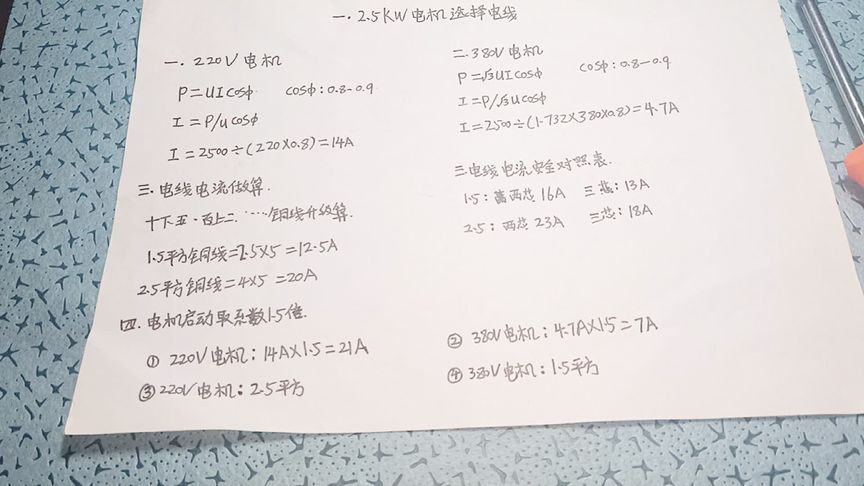 一.2.5KW电机选择电线
一.220V电机
P=UIcosφ cosφ:0.8-0.9
I=P/ucosφ
I=2500÷(220×0.8)=14A
二.380V电机
P=√3UIcosφ cosφ:0.8-0.9
I=P/√3ucosφ
I=2500÷(1.732×380×0.8)=4.7A
三.电线电流做算.
十下五·百上二.……铜线升级算.
1.5平方铜线=2.5×5=12.5A
2.5平方铜线=4×5=20A
三电线电流安全对照表.
1.5: 两芯16A 三芯:13A
2.5: 两芯23A 三芯:18A
四.电机启动取系数1.5倍.
① 220V电机:14A×1.5=21A
② 380V电机:4.7A×1.5=7A
③220V电机:2.5平方
④380V电机:1.5平方